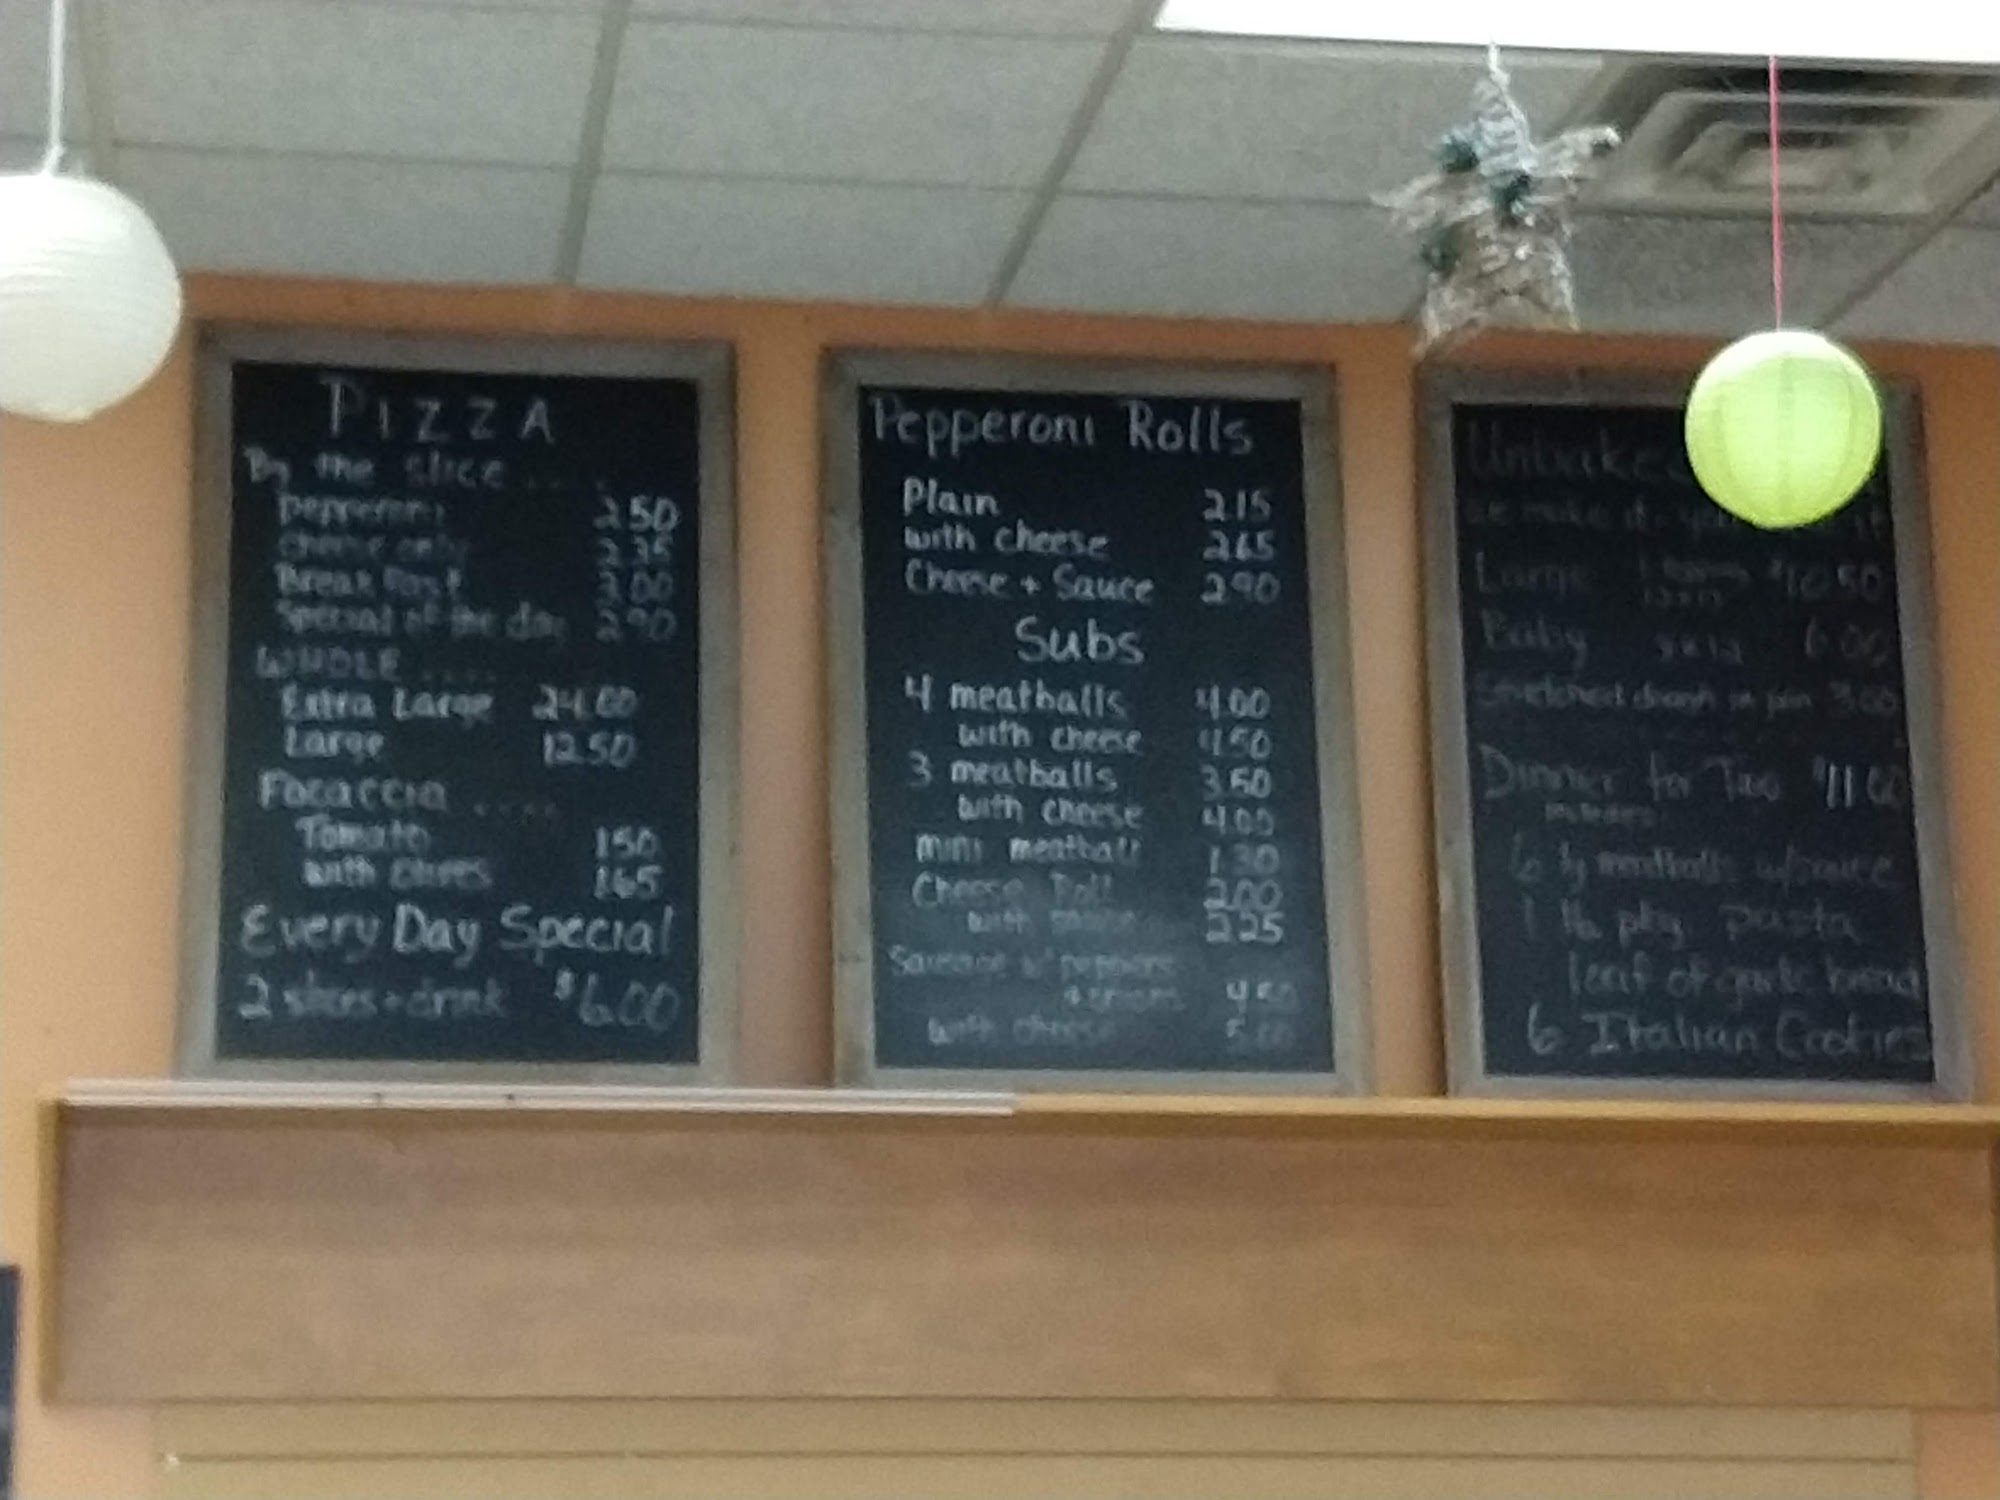 PIZZA
By the slice ....
pepperoni 2.50
cheese only 2.35
Breakfast 3.00
Special of the day 2.90
WHOLE ....
Extra Large 24.00
Large 12.50
Focaccia ....
Tomato 1.50
with olives 1.65
Every Day Special
2 slices + drink $6.00
Pepperoni Rolls
Plain 2.15
with cheese 2.65
Cheese + Sauce 2.90
Subs
4 meatballs 4.00
with cheese 4.50
3 meatballs 3.50
with cheese 4.00
mini meatball 1.30
Cheese Roll 2.00
with 2.25
Sausage w/ peppers
+ onions 4.50
with cheese 5.00
Unbaked
we make it - you it
Large $10.50
Baby 9x12 6.00
Stretched dough in pan 3.00
Dinner for Two $11.00
includes
6 meatballs w/sauce
1 lb pkg pasta
loaf of garlic bread
6 Italian Cookies